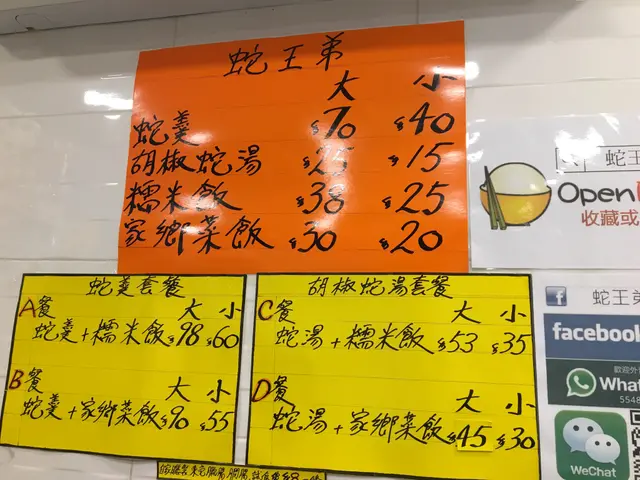 蛇王弟
大 小
蛇羹 $70 $40
胡椒蛇湯 $25 $15
糯米飯 $38 $25
家鄉菜飯 $30 $20
蛇羹套餐
A餐 大 小
蛇羹+糯米飯 $98 $60
B餐 大 小
蛇羹+家鄉菜飯 $90 $55
胡椒蛇湯套餐
C餐 大 小
蛇湯+糯米飯 $53 $35
D餐 大 小
蛇湯+家鄉菜飯 $45 $30
蛇王
Open
收藏或
蛇王弟
facebook
歡迎外
What
5548
WeChat